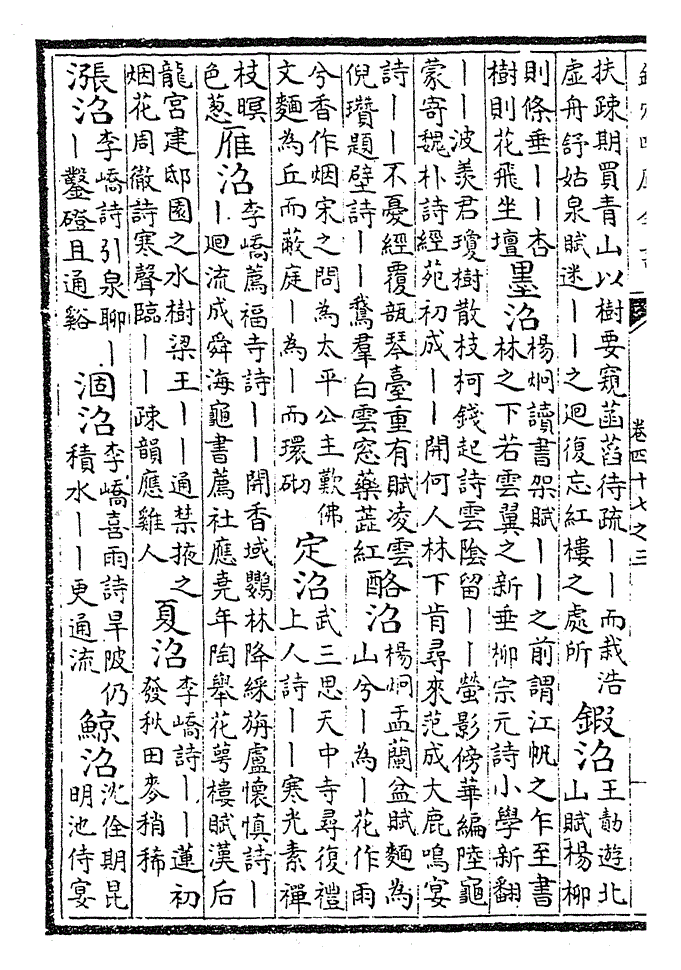 卷四十七之三
扶疎期買青山以樹要窺菡萏待疏——而栽浩
虛舟舒姑泉賦迷——之迴復忘紅樓之處所
鍜沼
王勃遊北
山賦楊柳
則條垂——杏
樹則花飛坐壇
墨沼
楊炯讀書架賦——之前謂江帆之乍至書
林之下若雲翼之新垂柳宗元詩小學新翻
——波羨君瓊樹散枝柯錢起詩雲陰留——螢影傍華編陸龜
蒙寄魏朴詩經苑初成——開何人林下肯尋來范成大鹿鳴宴
詩——不憂經覆瓿琴臺重有賦凌雲
倪瓚題壁詩——鵞羣白雲窓藥蕋紅
酪沼
楊炯盂蘭盆賦麵為
山兮—為—花作雨
兮香作烟宋之問為太平公主歎佛
文麵為丘而蔽庭—為—而環砌
定沼
武三思天中寺尋復禮
上人詩——寒光素禪
枝暝
色葱
雁沼
李嶠薦福寺詩——開香域鸚林降綵旃盧懷慎詩—
—迴流成舜海龜書薦社應堯年陶舉花萼樓賦漢后
龍宮建邸園之水樹梁王——通禁掖之
烟花周徹詩寒聲臨——疎韻應雞人
夏沼
李嶠詩——蓮初
發秋田麥稍稀
漲沼
李嶠詩引泉聊—
—鑿磴且通谿
涸沼
李嶠喜雨詩旱陂仍
積水——更通流
鯨沼
沈佺期昆
明池侍宴